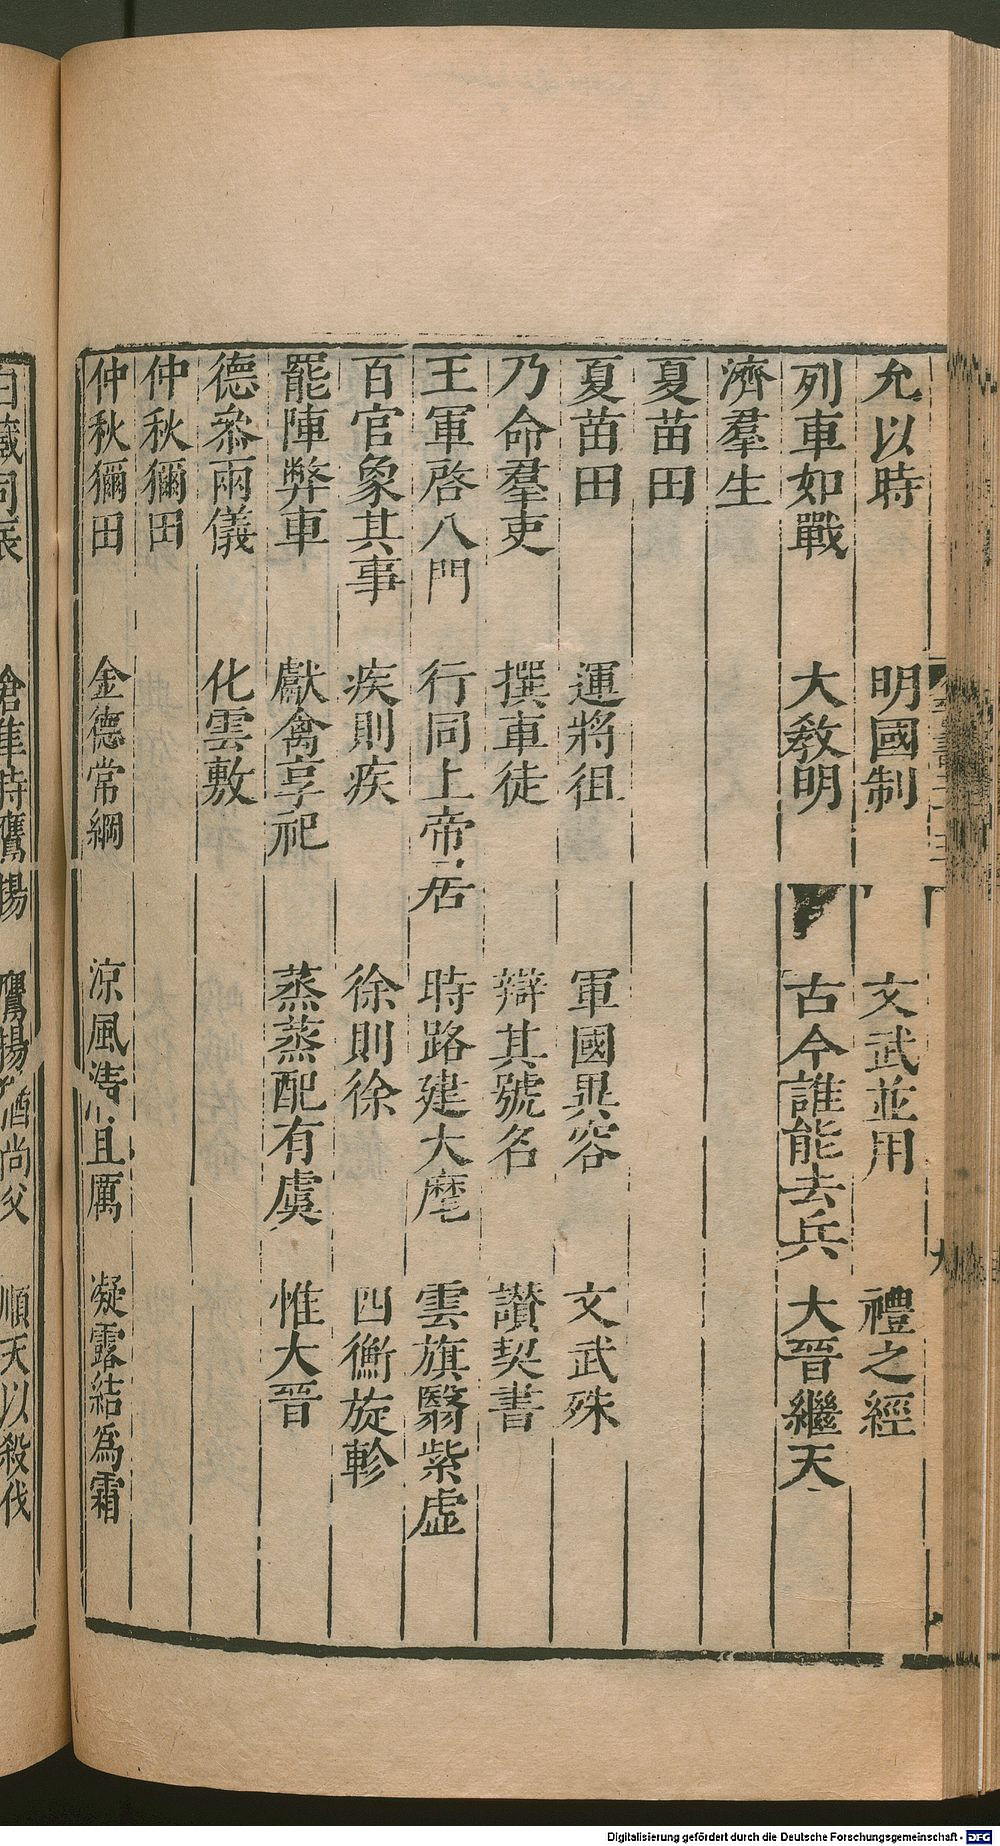 允以時　明國制　文武並用　禮之經
列車如戰　大教明　古今誰能去兵　大晉繼天
濟羣生
夏苗田
夏苗田　運將徂　軍國異容　文武殊
乃命羣吏　撰車徒　辯其號名　讃契書
王軍啓八門　行同上帝居　時路建大麾　雲旗翳紫虛
百官象其事　疾則疾　徐則徐　四衡旋軫
罷陣弊車　獻禽享祀　蒸蒸配有虞　惟大晉
德叅兩儀　化雲敷
仲秋獮田
仲秋獮田　金德常綱　涼風淸且厲　凝露結爲霜
白藏司辰　隼時鷹揚　鷹揚猶尚父　順天以殺伐
Digitalisierung gefördert durch die Deutsche Forschungsgemeinschaft - DFG